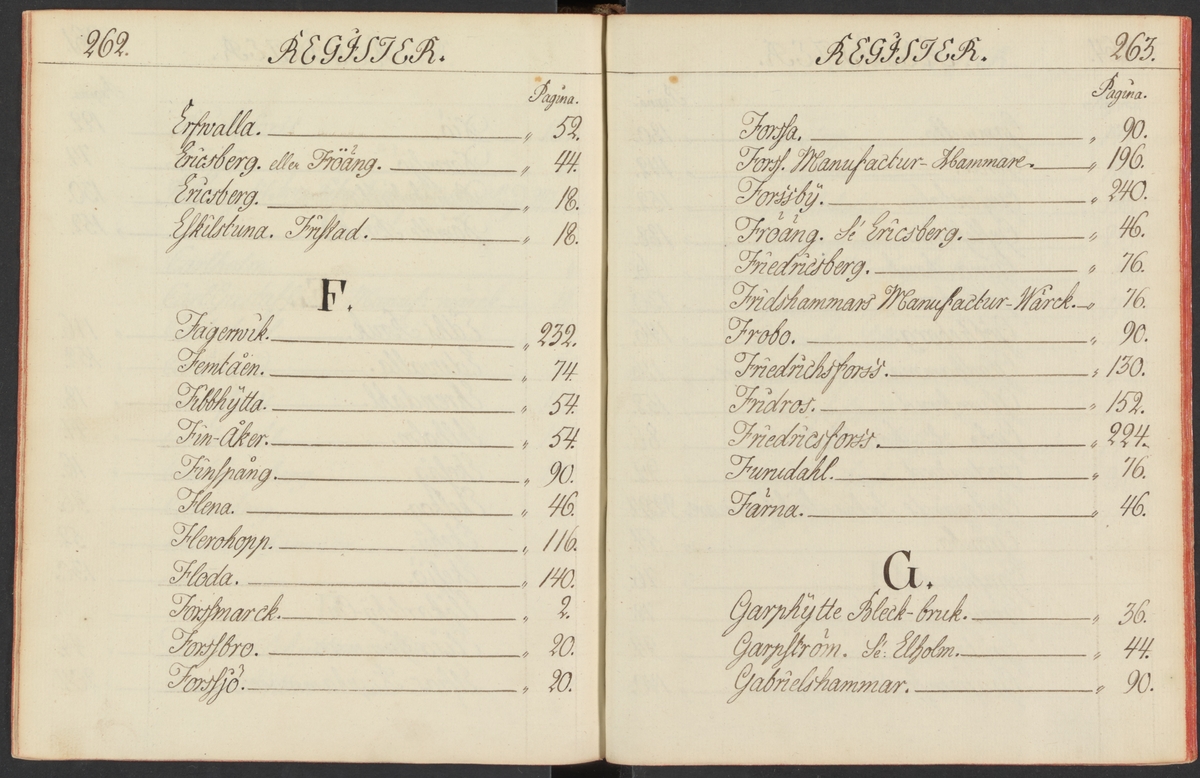 262.
REGISTER.
Pagina.
Erfwalla. „ 52.
Ericsberg. eller Fröång. „ 44.
Ericsberg. „ 18.
Eskilstuna. Fristad. „ 18.
F.
Fagerwik. „ 232.
Femtåen. „ 74.
Fibbhytta. „ 54.
Fin-Åker. „ 54.
Finspång. „ 90.
Flena. „ 46.
Flerohopp. „ 116.
Floda. „ 140.
Forssmarck. „ 2.
Forssbro. „ 20.
Forssjö. „ 20.
REGISTER.
263.
Pagina.
Forssa. „ 90.
Forss. Manufactur-Hammare. „ 196.
Forssby. „ 240.
Fröång. Sé Ericsberg. „ 46.
Friedricsberg. „ 76.
Fridshammars Manufactur-Wärck. „ 76.
Frobo. „ 90.
Friedrichsforss. „ 130.
Fridros. „ 152.
Friedricsforss. „ 224.
Furudahl. „ 76.
Färna. „ 46.
G.
Garphytte Bleck-bruk. „ 36.
Garpström. Sé: Elholm. „ 44.
Gabrielshammar. „ 90.